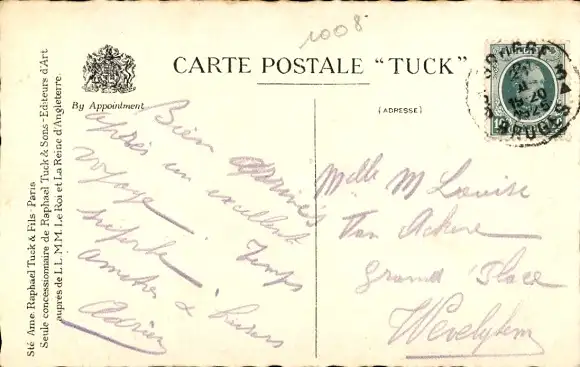 1008
CARTE POSTALE "TUCK"
By Appointment
(ADRESSE)
Sté Ame. Raphael Tuck & Fils - Paris
Seule concessionnaire de Raphael Tuck & Sons - Editeurs d'Art
auprès de L.L. M.M. Le Roi et La Reine d'Angleterre.
Bien arrivés
après un excellent
voyage. Temps
superbe.
Amitiés &
Adrien
Melle M Louise
Van Ackere
Grand' Place
Wevelghem
BRUGGE
BRUGES